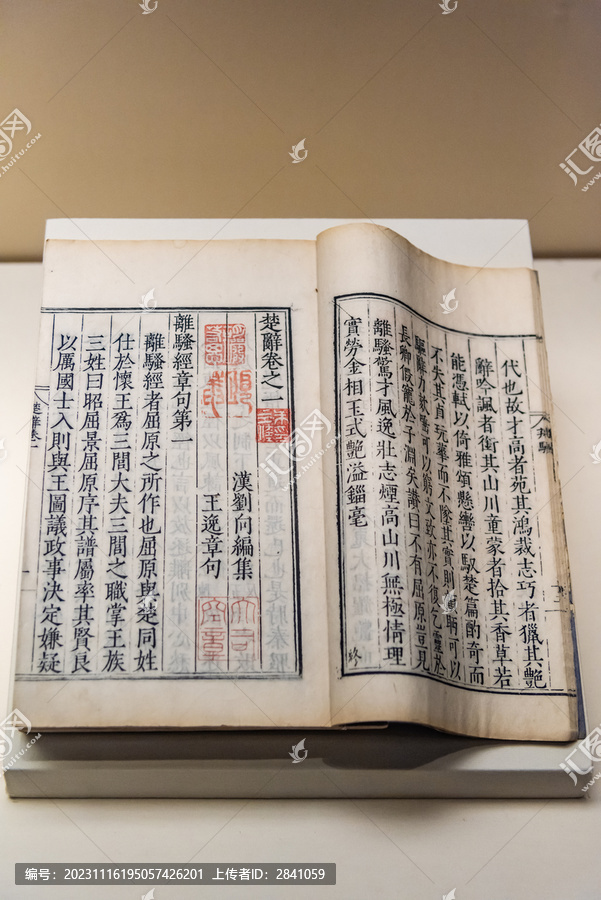 代也故才高者苑其鴻裁志巧者獵其艷
辭吟諷者銜其山川童蒙者拾其香草若
能憑軾以倚雅頌懸轡以馭楚篇酌奇而
不失其貞玩華而不墜其實則顧盼可以
驅辭力欬唾可以窮文致亦不復乞靈於
長卿假寵於子淵矣讃曰不有屈原豈見
離騷驚才風逸壯志煙高山川無極情理
實勞金相玉式艷溢錙毫
楚辭卷之一
漢劉向編集
王逸章句
離騷經章句第一
離騷經者屈原之所作也屈原與楚同姓
仕於懷王爲三閭大夫三閭之職掌王族
三姓曰昭屈景屈原序其譜屬率其賢良
以厲國士入則與王圖議政事決定嫌疑
汇图网
huitu.com
编号：20231116195057426201 上传者ID：2841059